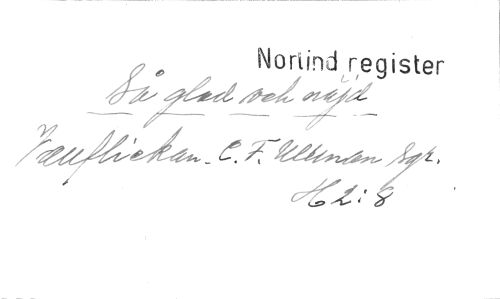 Norlind register
Så glad och nöjd
Vallflickan. C. F. Ullman sgr.
H 2:8